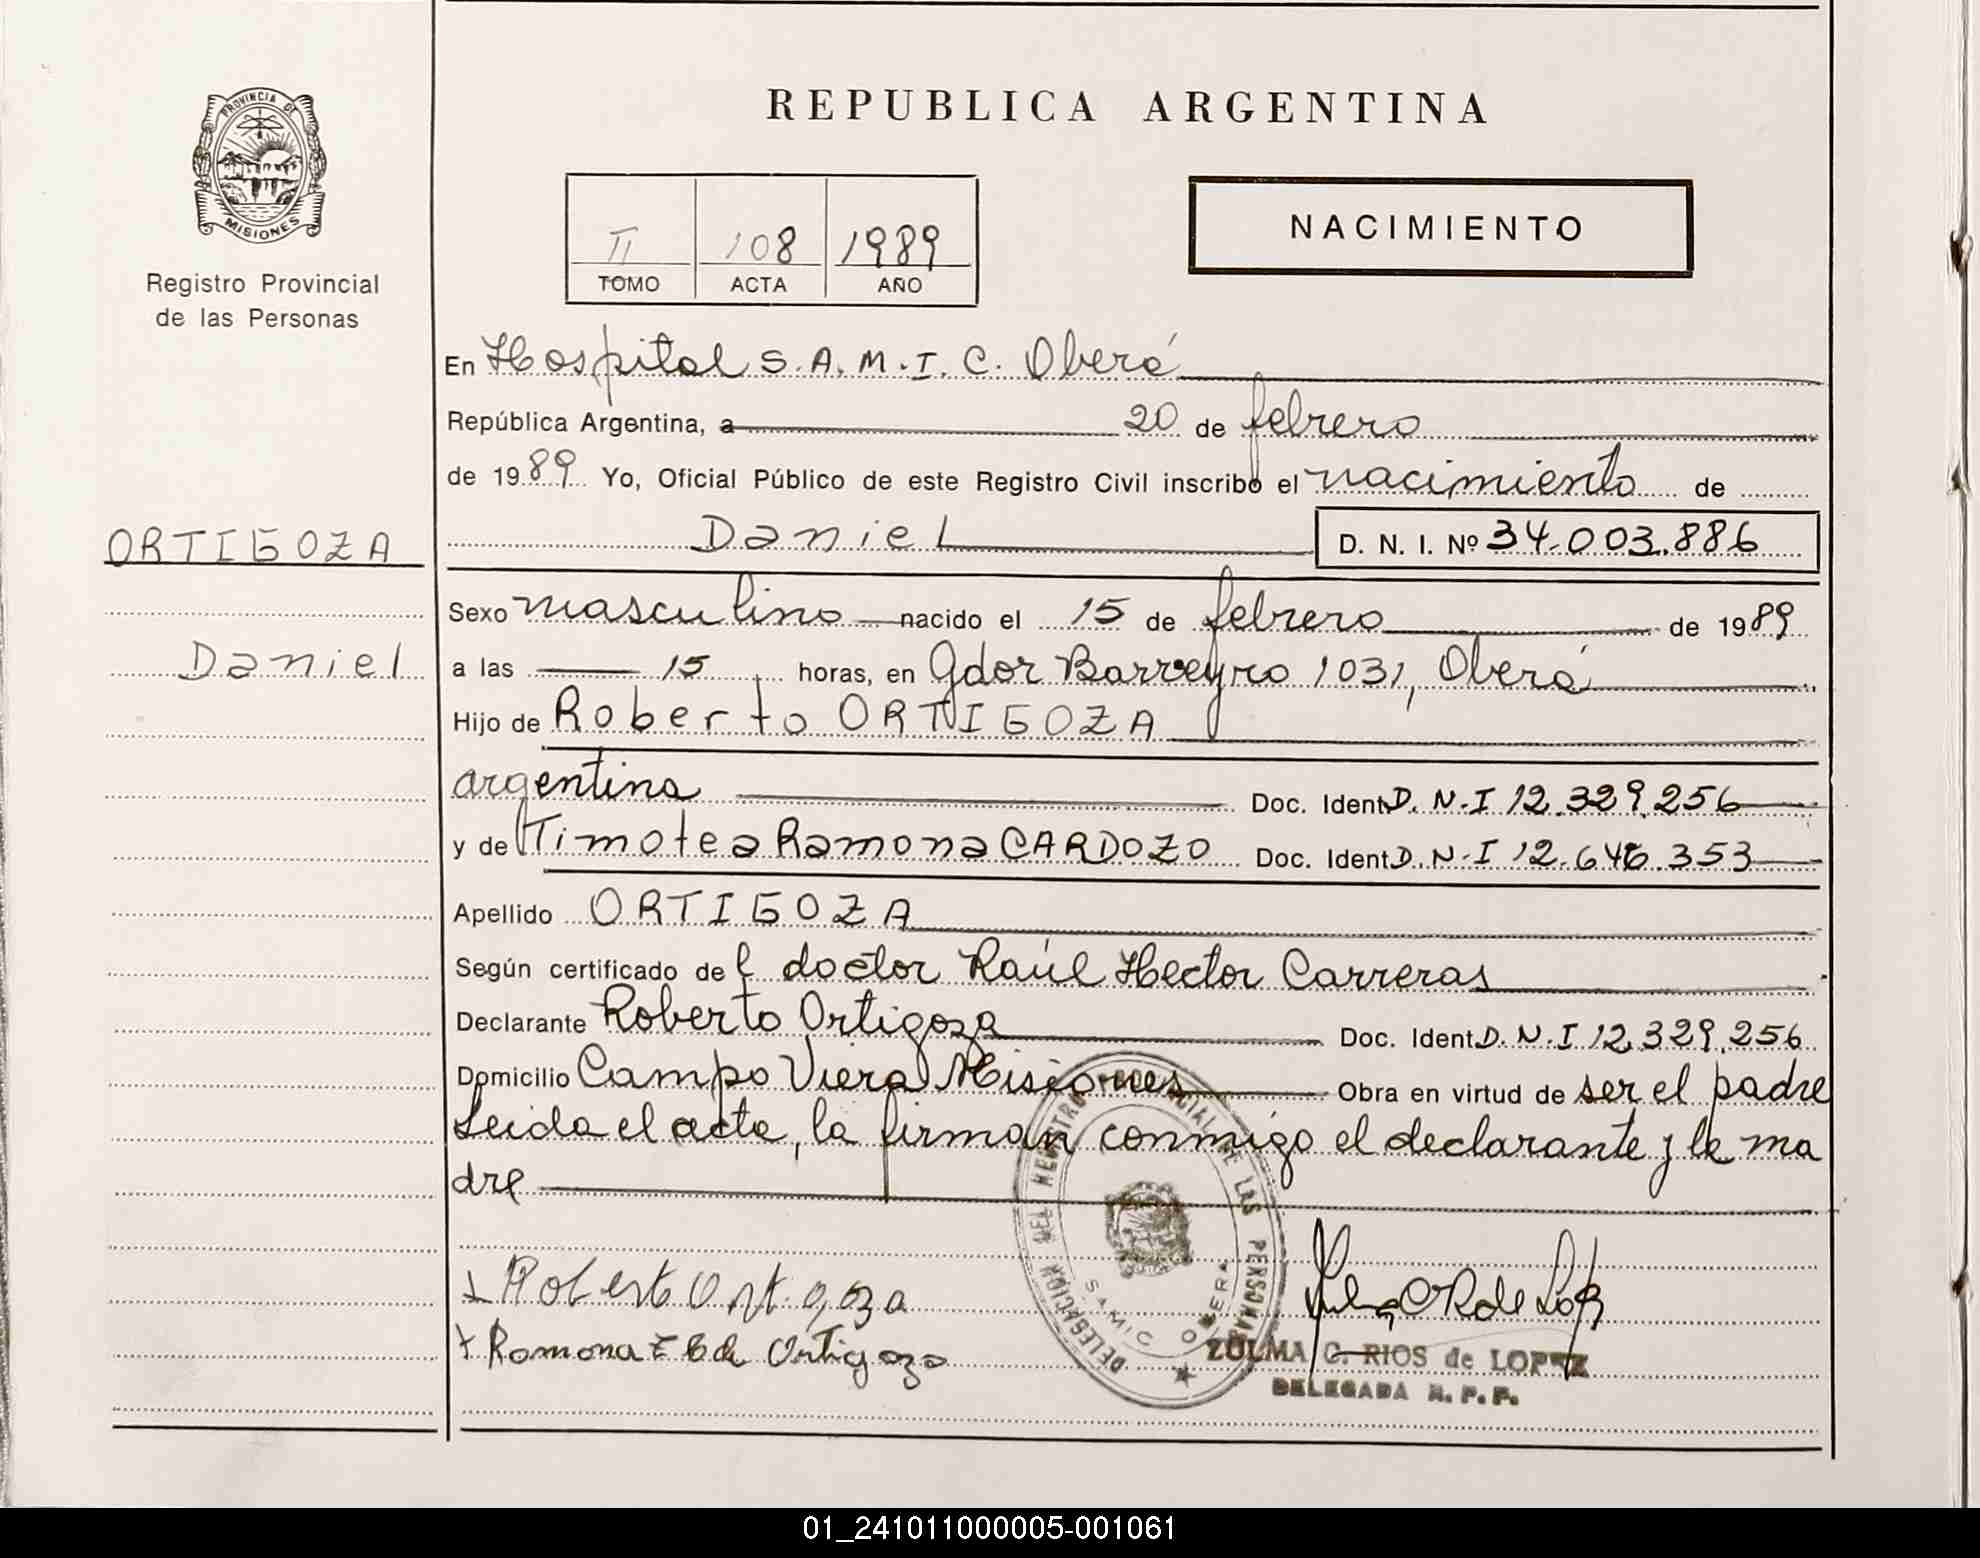 PROVINCIA DE
MISIONES
Registro Provincial
de las Personas
ORTIGOZA
Daniel
REPUBLICA ARGENTINA
II 108 1989
TOMO ACTA AÑO
NACIMIENTO
En Hospital S.A.M.I.C. Oberá
República Argentina, a 20 de febrero
de 1989 Yo, Oficial Público de este Registro Civil inscribo el nacimiento de
Daniel D. N. I. Nº 34.003.886
Sexo masculino nacido el 15 de febrero de 1989
a las 15 horas, en Gdor Barreyro 1031, Oberá
Hijo de Roberto ORTIGOZA
argentina Doc. Ident D.N.I 12.329.256
y de Timotea Ramona CARDOZO Doc. Ident D.N.I 12.646.353
Apellido ORTIGOZA
Según certificado del doctor Raúl Hector Carreras
Declarante Roberto Ortigoza Doc. Ident D.N.I 12.329.256
Domicilio Campo Viera Misiones Obra en virtud de ser el padre
Leida el acta, la firman conmigo el declarante y la ma
dre
DELEGACION DEL REGISTRO PROVINCIAL DE LAS PERSONAS
SAMIC OBERA
Roberto Ortigoza
Ramona de Ortigoza
ZULMA C. RIOS de LOPEZ
DELEGADA R. P. P.
01_241011000005-001061